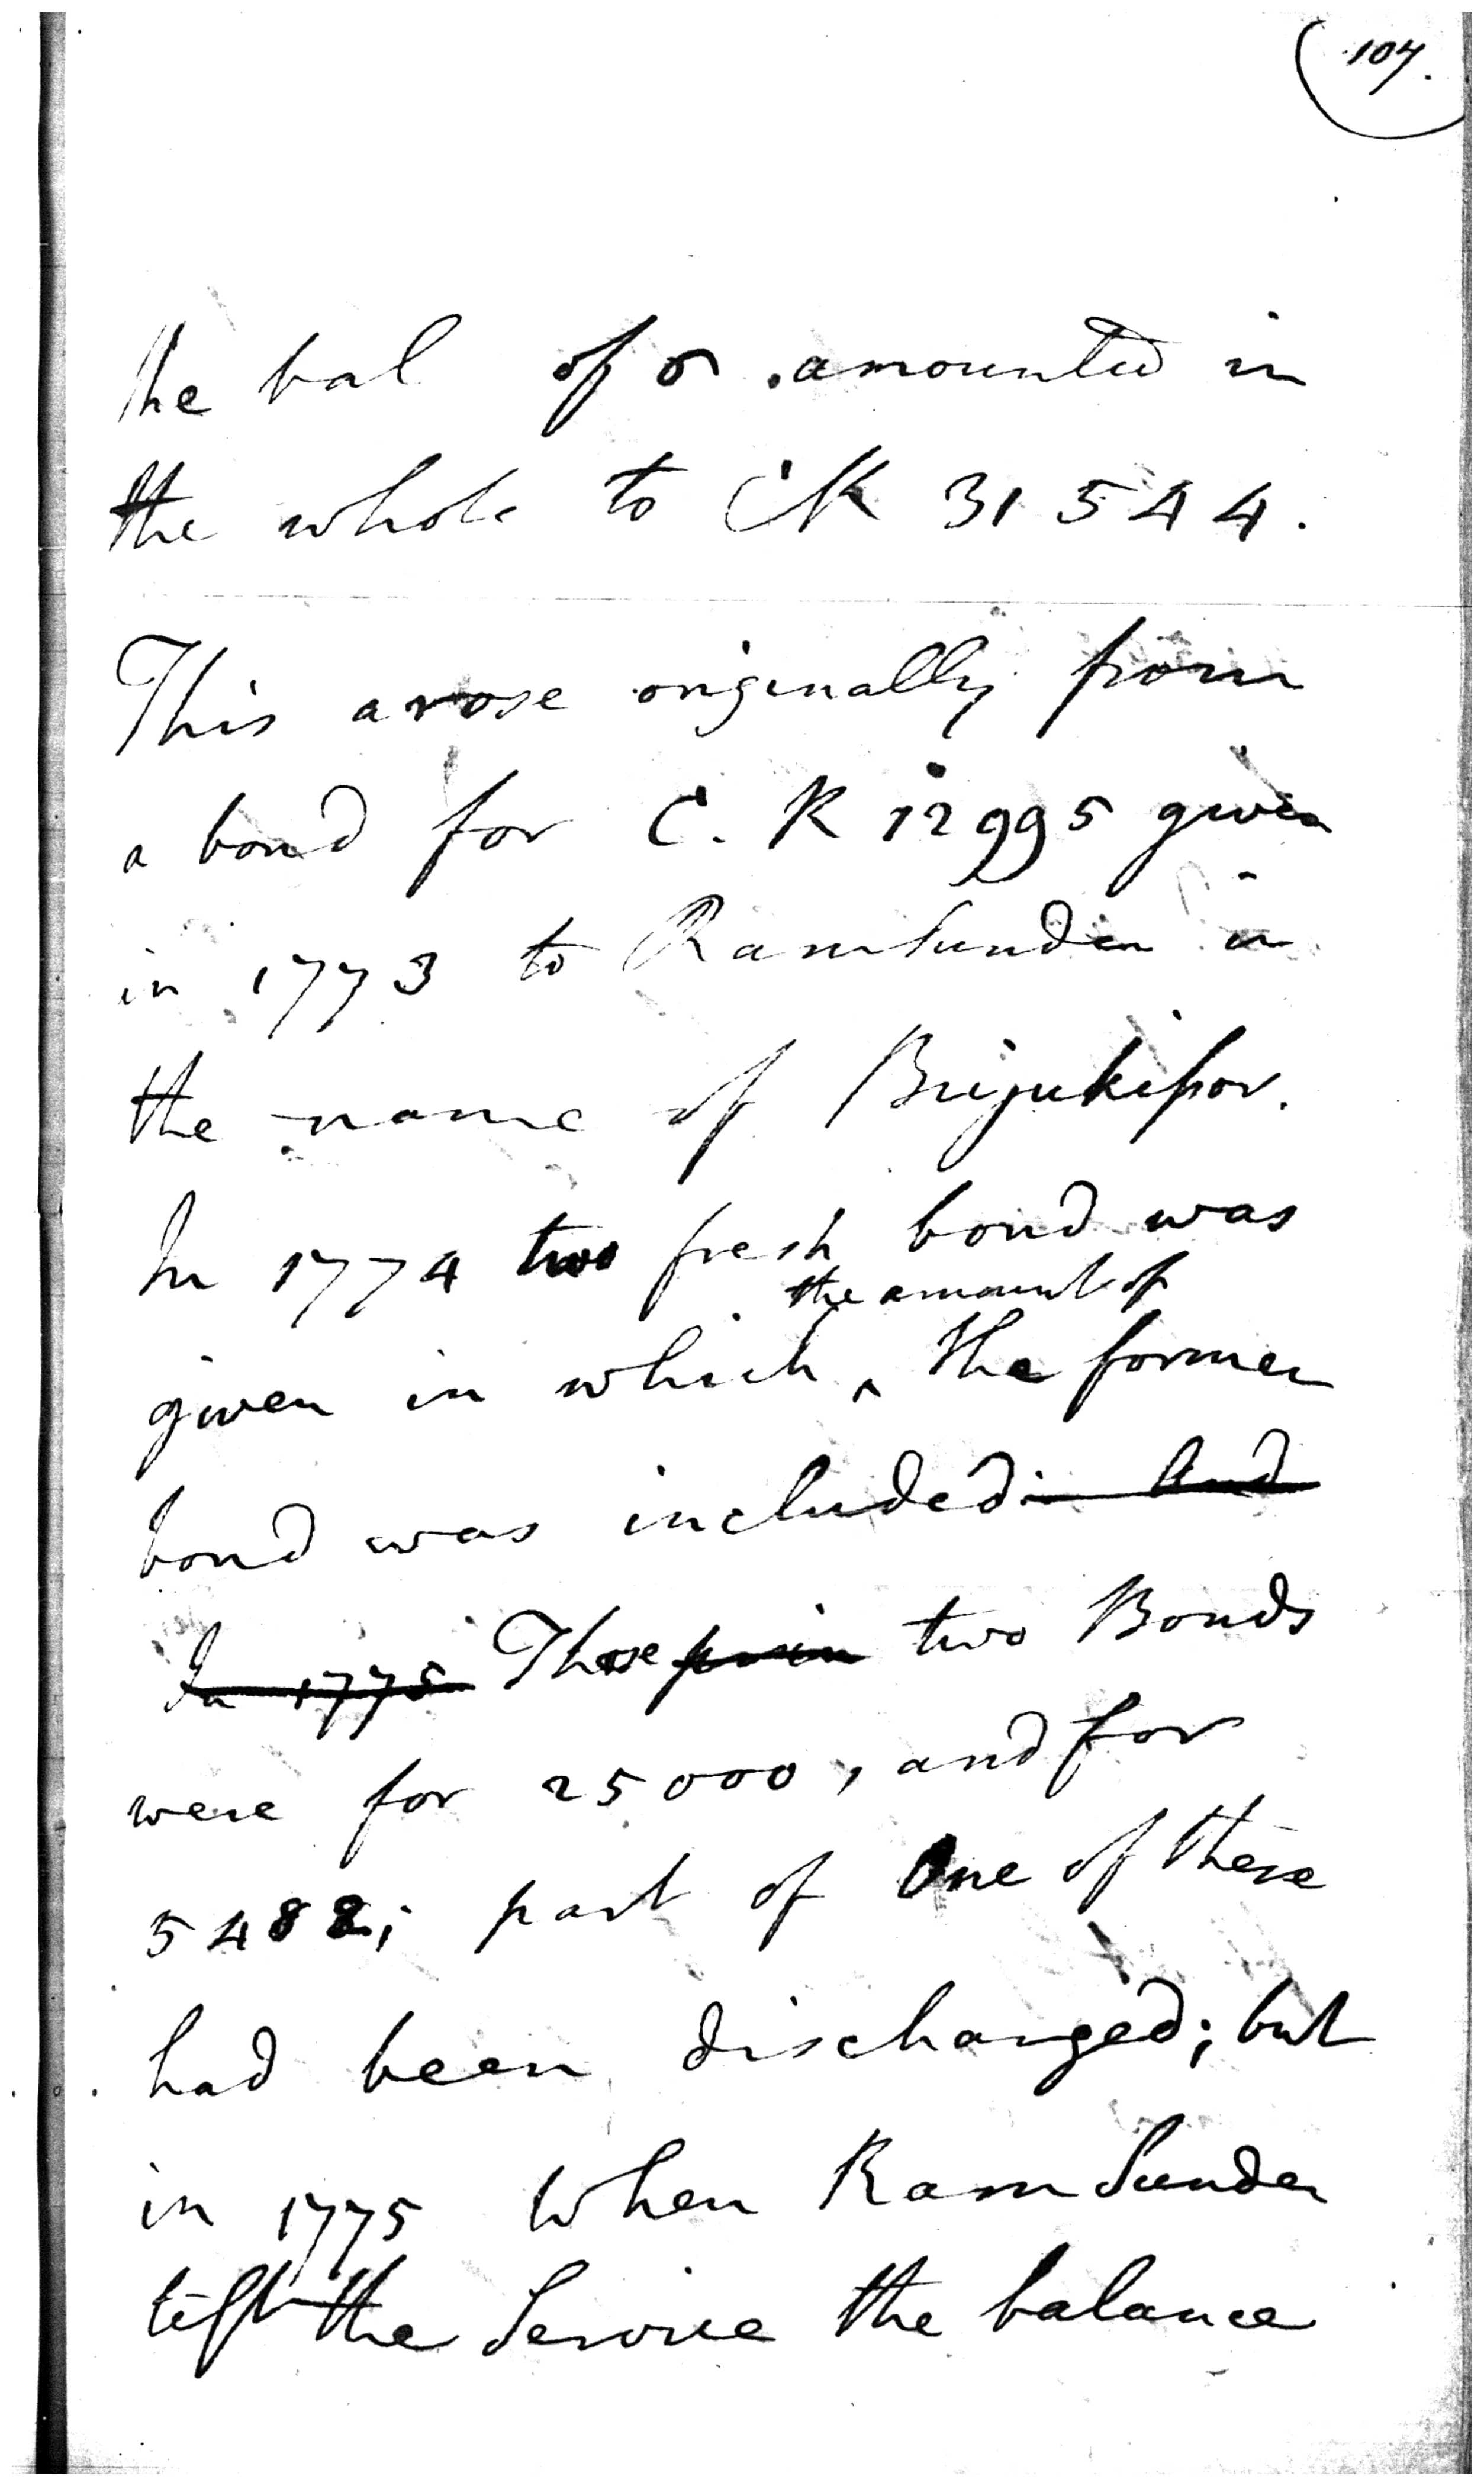 107.
the bal of amounted in
the whole to CR 31544.
This arose originally from
a bond for C. R 12995 given
in 1773 to Ramsunder in
the name of Brijukisor.
In 1774 two fresh bond was
the amount of
given in which ^ the former
bond was included. And
In 1775 These two Bonds
were for 25000, and for
5488; part of One of these
had been discharged; but
in 1775 when Ramsunder
left the Service the balance